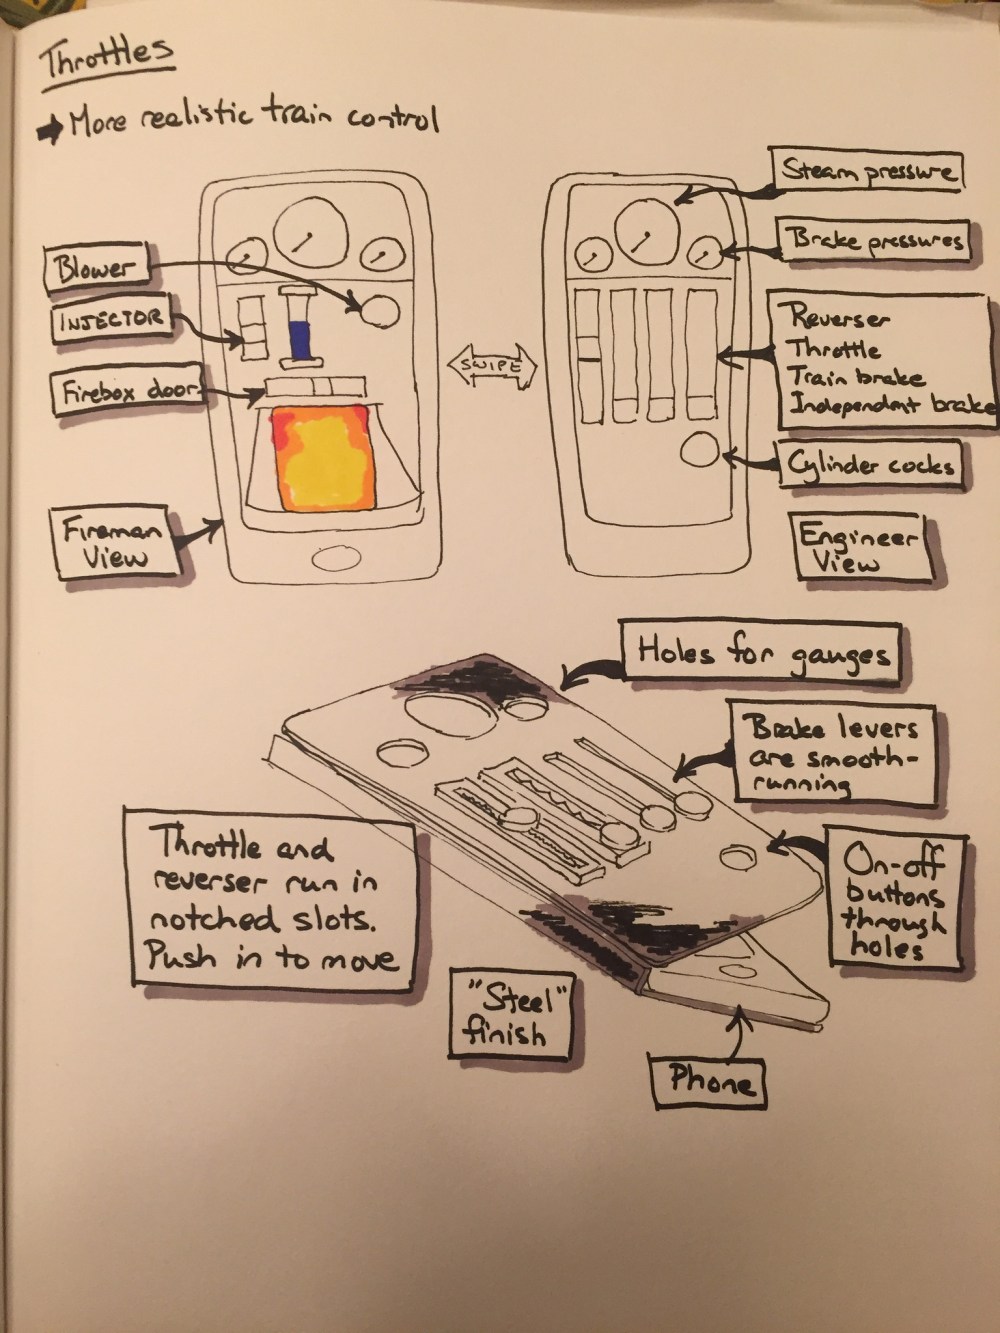 Throttles
➡ More realistic train control
Steam pressure
Brake pressures
Blower
INJECTOR
Firebox door
Reverser
Throttle
Train brake
Independent brake
SWIPE
Cylinder cocks
Fireman
View
Engineer
View
Holes for gauges
Brake levers
are smooth-
running
Throttle and
reverser run in
notched slots.
Push in to move
On-off
buttons
through
holes
"Steel"
finish
Phone